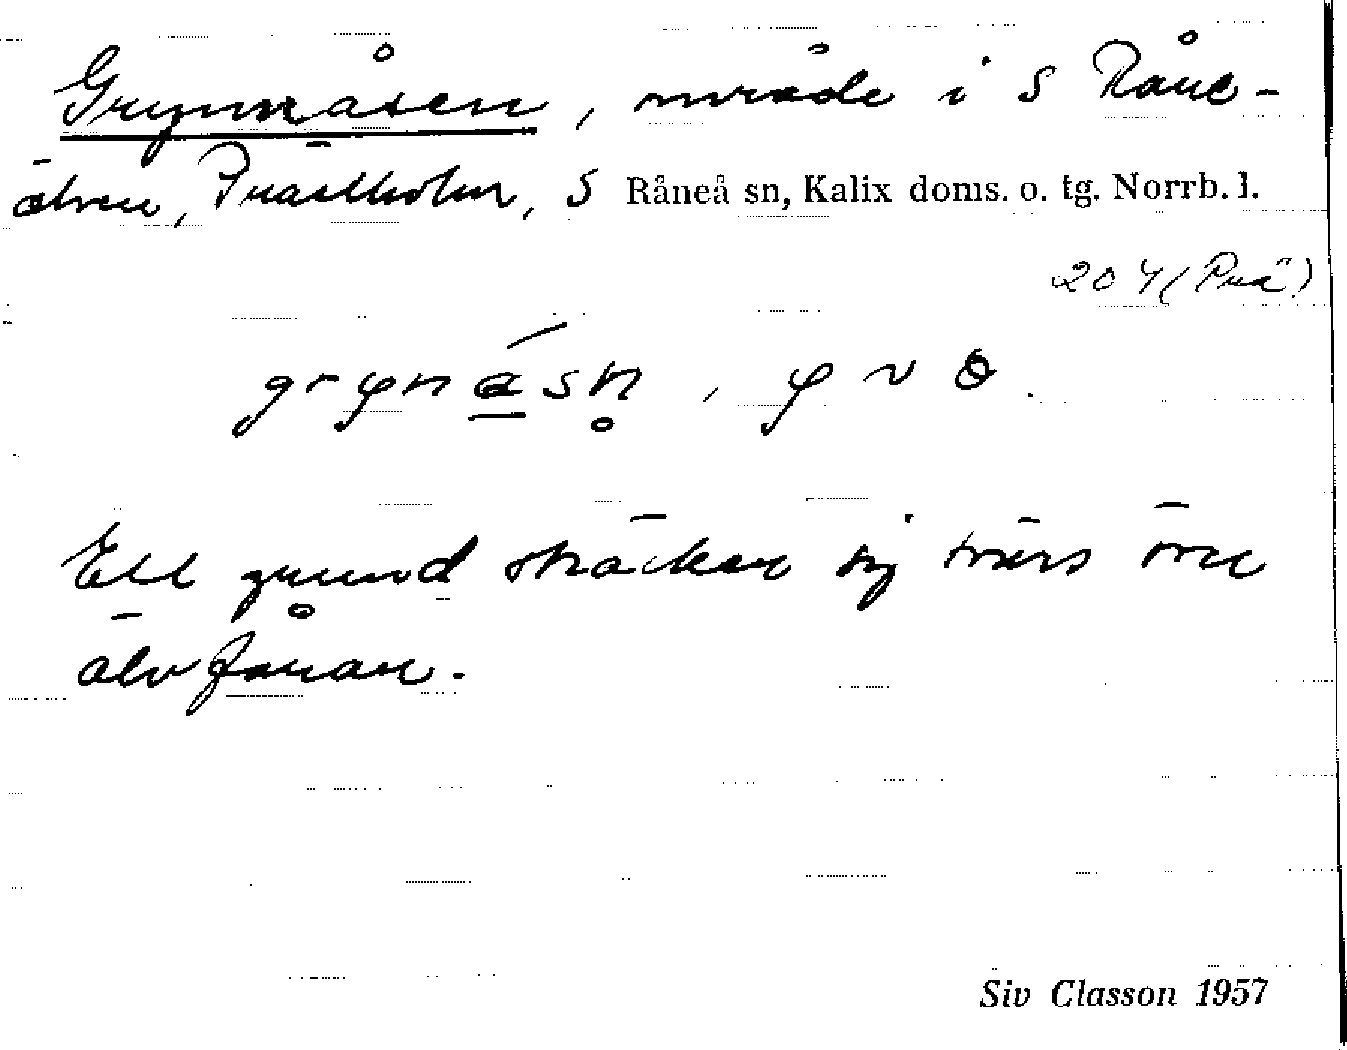 Grynnåsen, område i S Råne-
älven, Prästholm, S Råneå sn, Kalix doms. o. tg. Norrb. l.
204 (Prä)
Ett grund sträcker sig tvärs över
älvfåran.
Siv Classon 1957